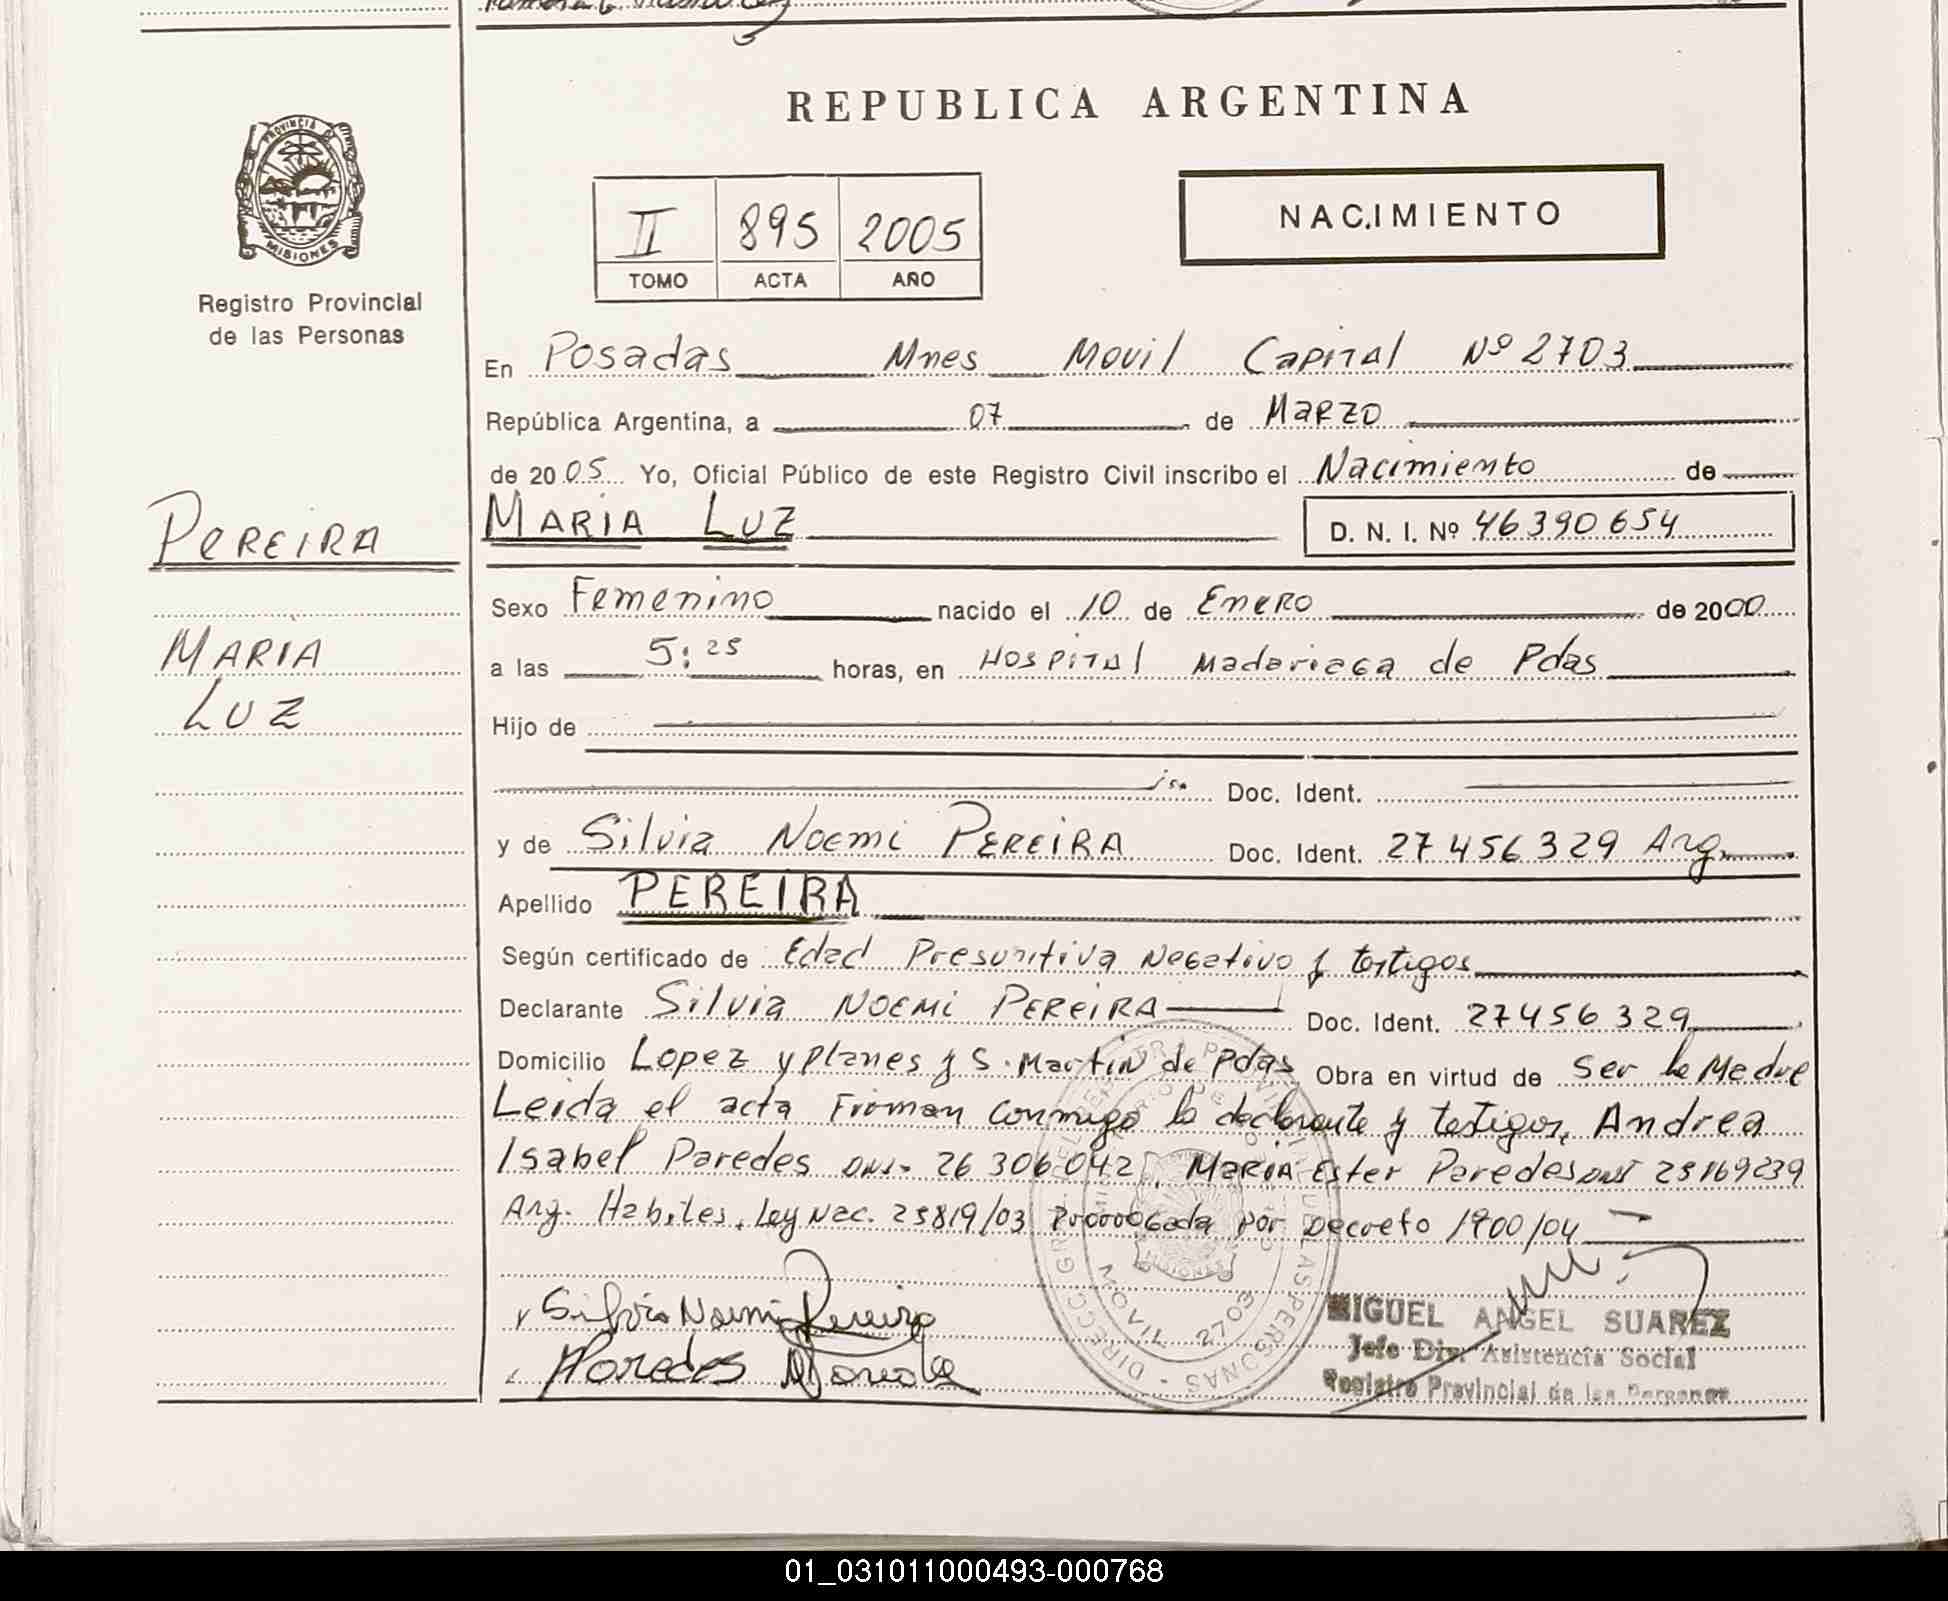 REPUBLICA ARGENTINA
PROVINCIA DE
MISIONES
Registro Provincial
de las Personas
II 895 2005
TOMO ACTA AÑO
NACIMIENTO
En Posadas Mnes Movil Capital Nº 2703
República Argentina, a 07 de Marzo
de 2005 Yo, Oficial Público de este Registro Civil inscribo el Nacimiento de
PEREIRA
MARIA LUZ D. N. I. Nº 46390654
Sexo Femenino nacido el 10 de Enero de 2000
MARIA
a las 5:25 horas, en Hospital Madariaga de Pdas
LUZ
Hijo de
Doc. Ident.
y de Silvia Noemi PEREIRA Doc. Ident. 27456329 Arg.
Apellido PEREIRA
Según certificado de Edad Presuntiva Negativo y testigos
Declarante Silvia NOEMI PEREIRA Doc. Ident. 27456329
Domicilio Lopez y Planes y S. Martin de Pdas Obra en virtud de Ser la Madre
Leida el acta Firman conmigo la declarante y testigos, Andrea
Isabel Paredes DNI. 26306042, MARIA Ester Paredes DNI 25169239
Arg. Habiles, Ley Nac. 25819/03 Prorrogada por Decreto 1900/04
Silvia Noemi Pereira
Paredes
MOVIL 2703
MIGUEL ANGEL SUAREZ
Jefe Div. Asistencia Social
Registro Provincial de las Personas
01_031011000493-000768